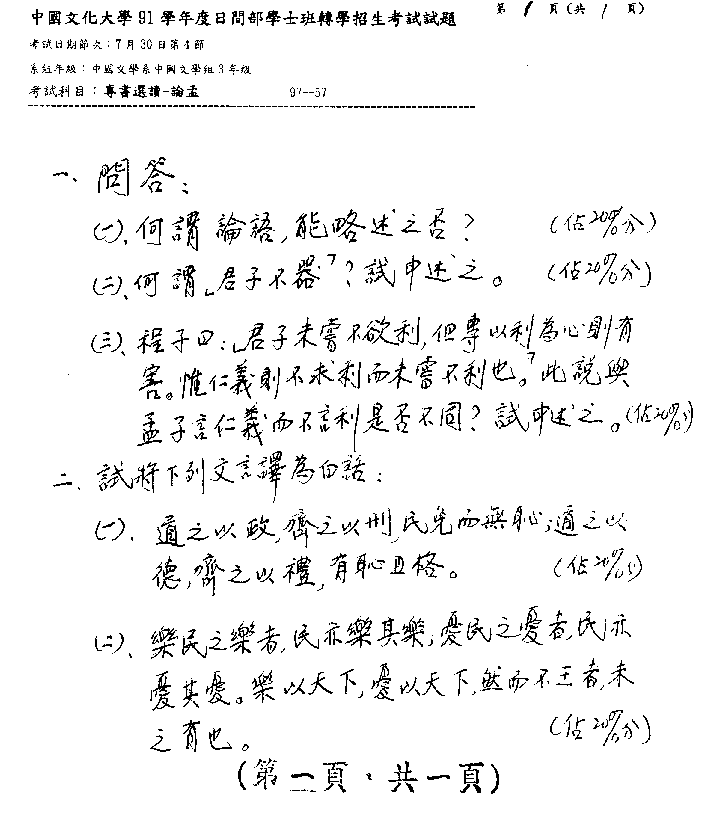 中國文化大學91學年度日間部學士班轉學招生考試試題 第1頁(共1頁)
考試日期節次：7月30日第4節
系組年級：中國文學系中國文學組3年級
考試科目：專書選讀-論孟 97--57
一、問答：
(一)、何謂論語，能略述之否？ (佔20%分)
(二)、何謂「君子不器」？試申述之。 (佔20%分)
(三)、程子曰：「君子未嘗不欲利，但專以利為心則有
害。惟仁義則不求利而未嘗不利也。」此說與
孟子言仁義而不言利是否不同？試申述之。(佔20%分)
二、試將下列文言譯為白話：
(一)、道之以政，齊之以刑，民免而無恥；道之以
德，齊之以禮，有恥且格。 (佔20%分)
(二)、樂民之樂者，民亦樂其樂；憂民之憂者，民亦
憂其憂。樂以天下，憂以天下，然而不王者，未
之有也。 (佔20%分)
(第一頁，共一頁)